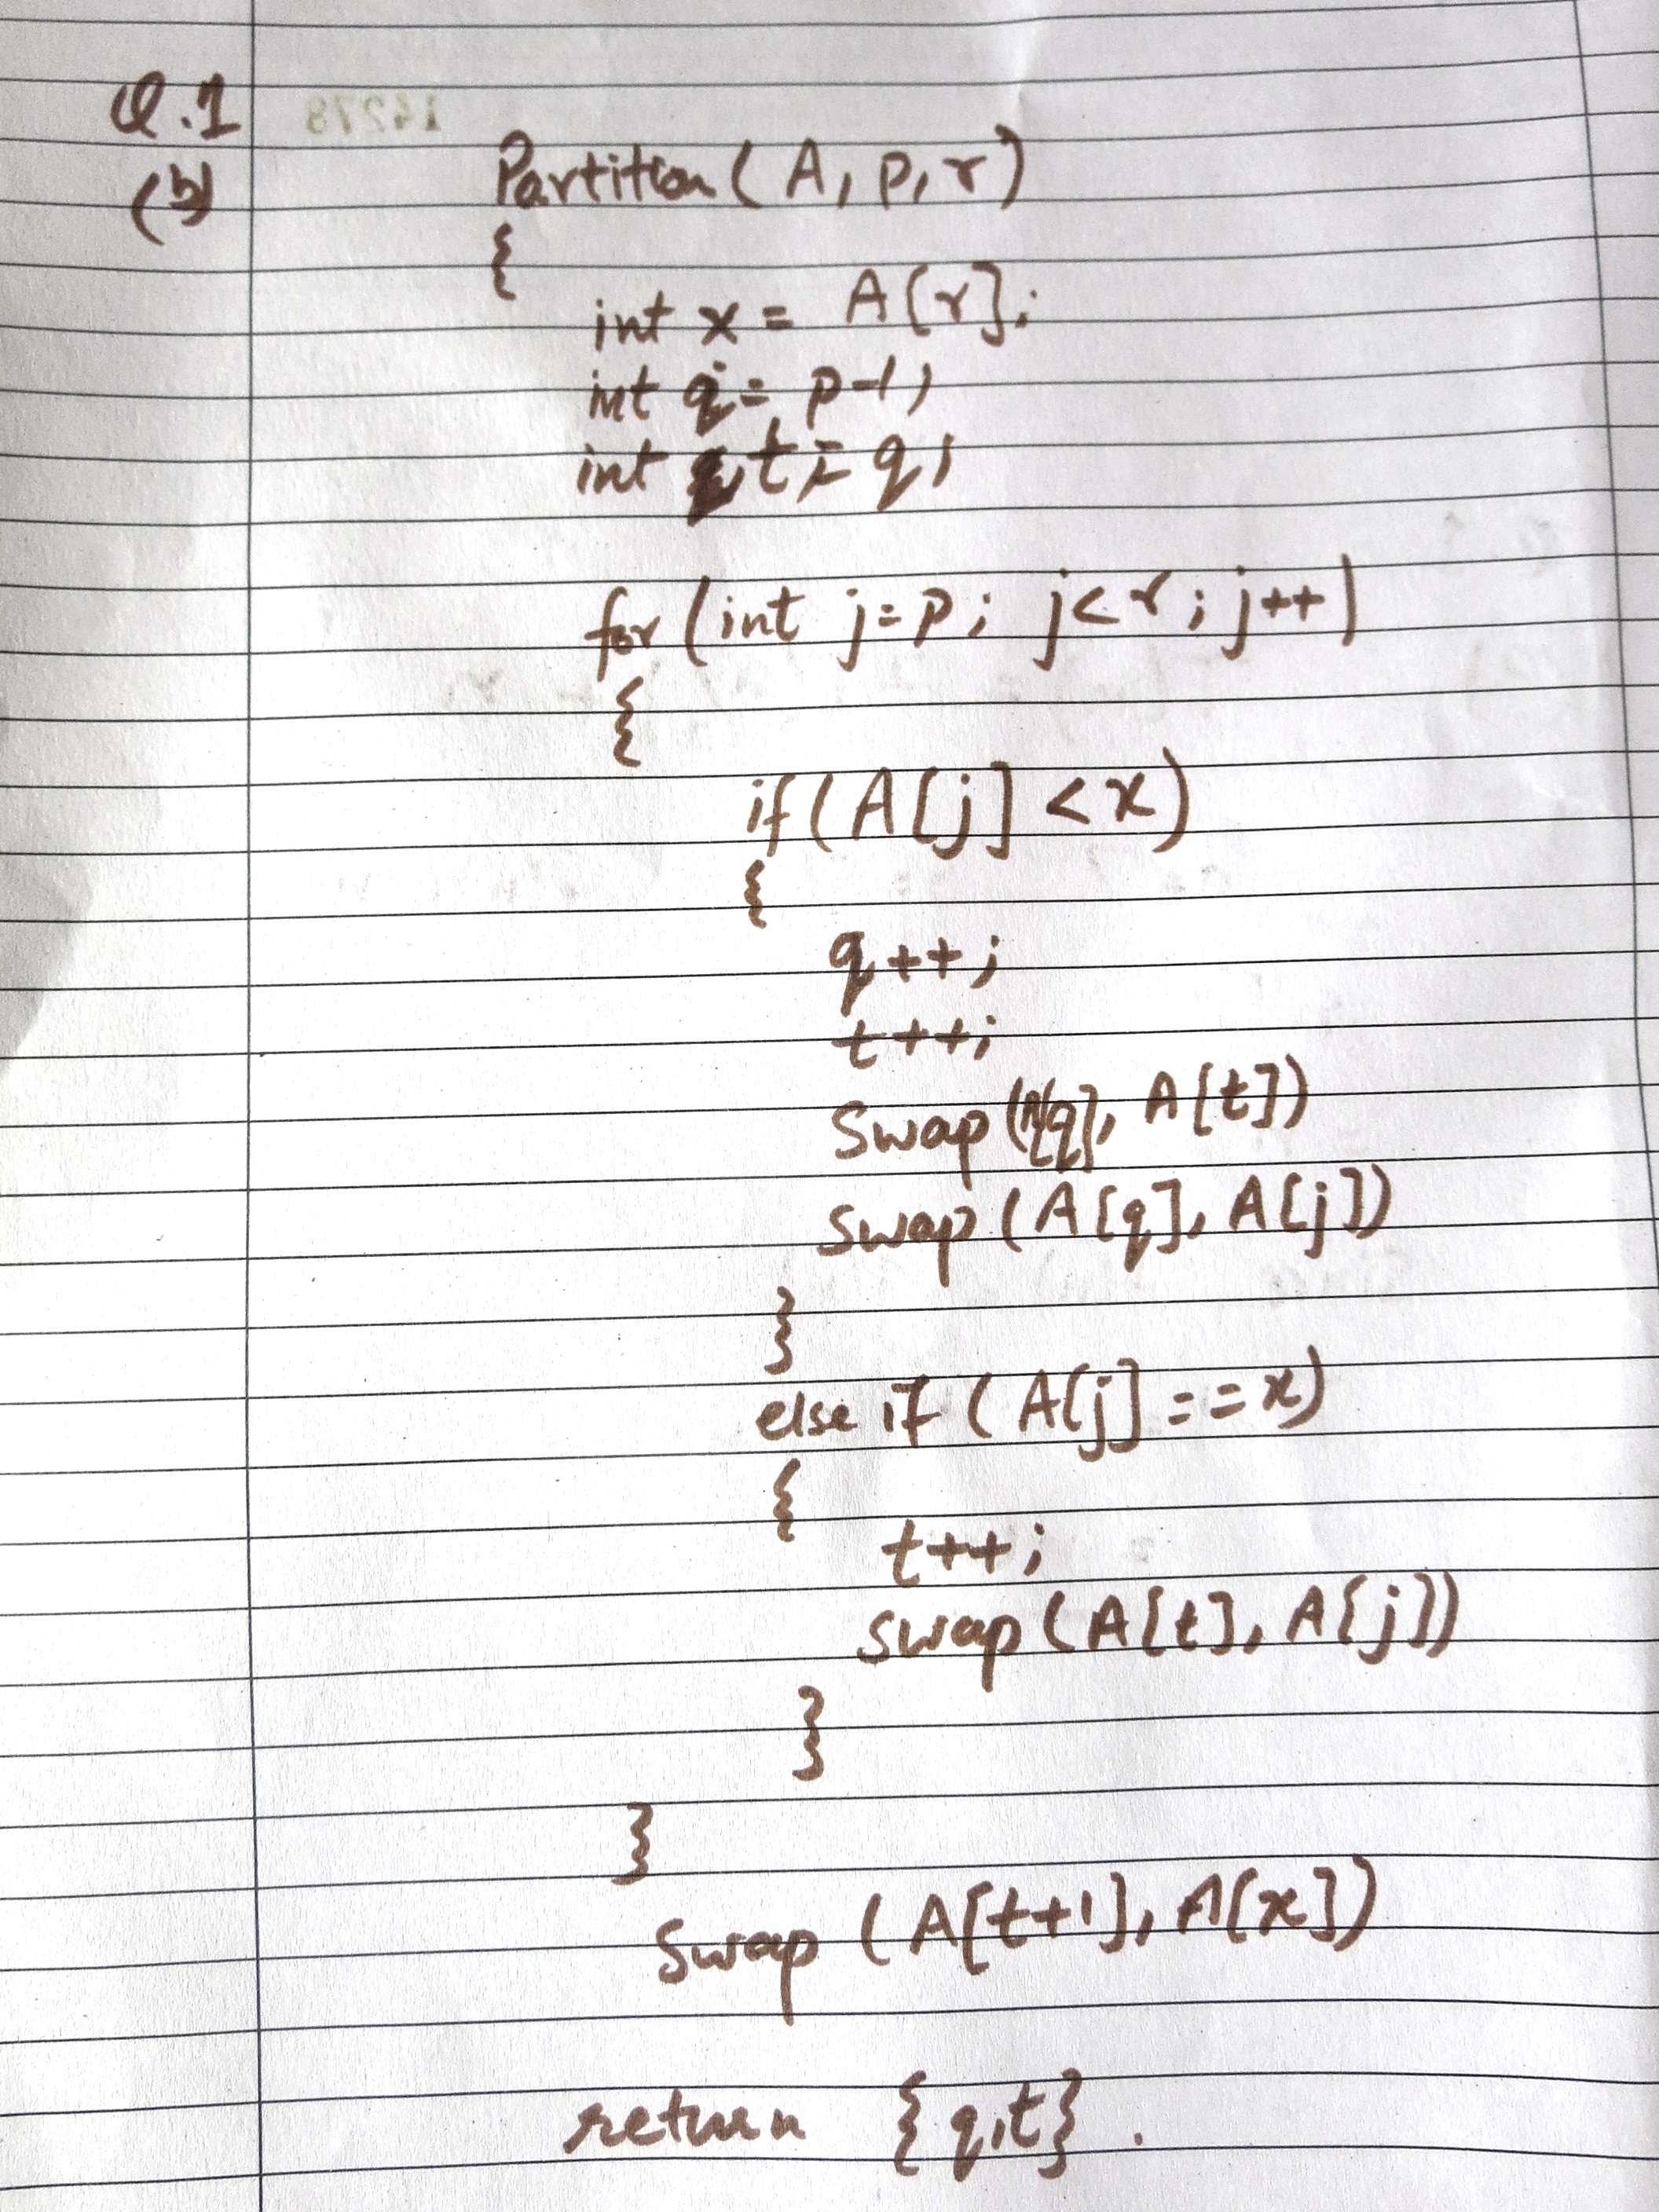 Q.1
(b)
Partition (A, p, r)
{
int x = A[r];
int q = p-1;
int t = q;
for (int j=p; j<r; j++)
{
if (A[j] < x)
{
q++;
t++;
Swap (A[q], A[t])
Swap (A[q], A[j])
}
else if (A[j] == x)
{
t++;
swap (A[t], A[j])
}
}
Swap (A[t+1], A[x])
return {q,t}.